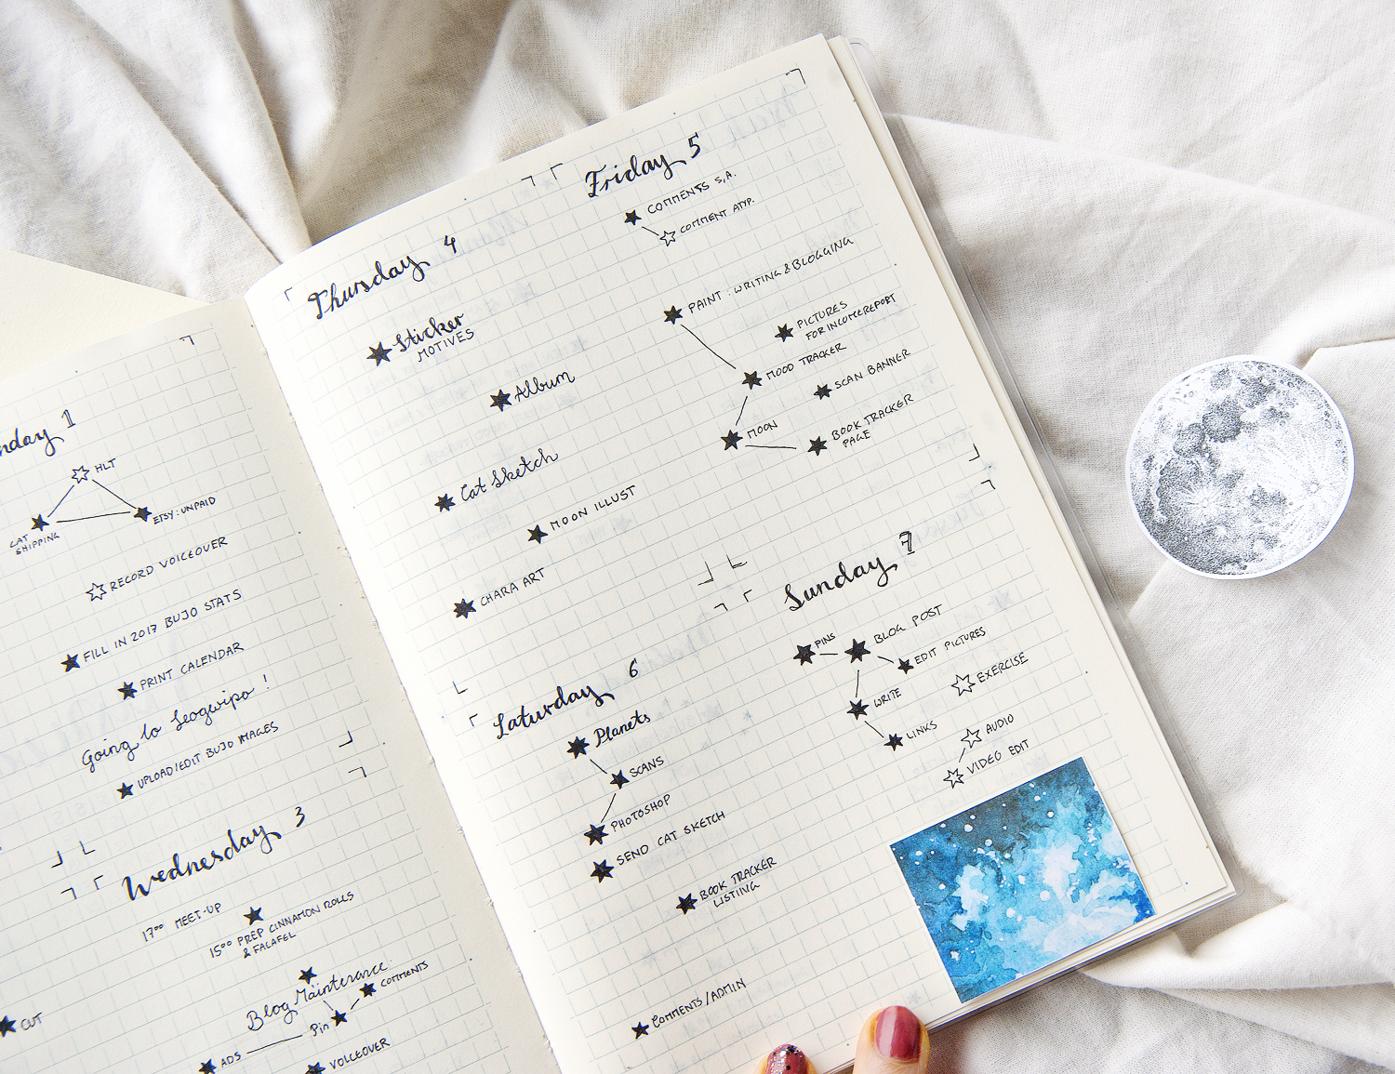 nday 1
HLT
CAT
SHIPPING
ETSY: UNPAID
RECORD VOICEOVER
FILL IN 2017 BUJO STATS
PRINT CALENDAR
Going to Seogwipo!
UPLOAD/EDIT BUJO IMAGES
Wednesday 3
17⁰⁰ MEET-UP
15⁰⁰ PREP CINNAMON ROLLS
& FALAFEL
Blog Maintenance
COMMENTS
Pin
ADS
VOICEOVER
CUT
Thursday 4
Sticker
MOTIVES
Album
Cat Sketch
MOON ILLUST
CHARA ART
Friday 5
COMMENTS S.A.
COMMENT ATYP.
PAINT: WRITING & BLOGGING
PICTURES
FOR INCOME REPORT
MOOD TRACKER
SCAN BANNER
MOON
BOOK TRACKER
PAGE
Saturday 6
Planets
SCANS
PHOTOSHOP
SEND CAT SKETCH
BOOK TRACKER
LISTING
COMMENTS/ADMIN
Sunday 7
PINS
BLOG POST
EDIT PICTURES
WRITE
EXERCISE
LINKS
AUDIO
VIDEO EDIT